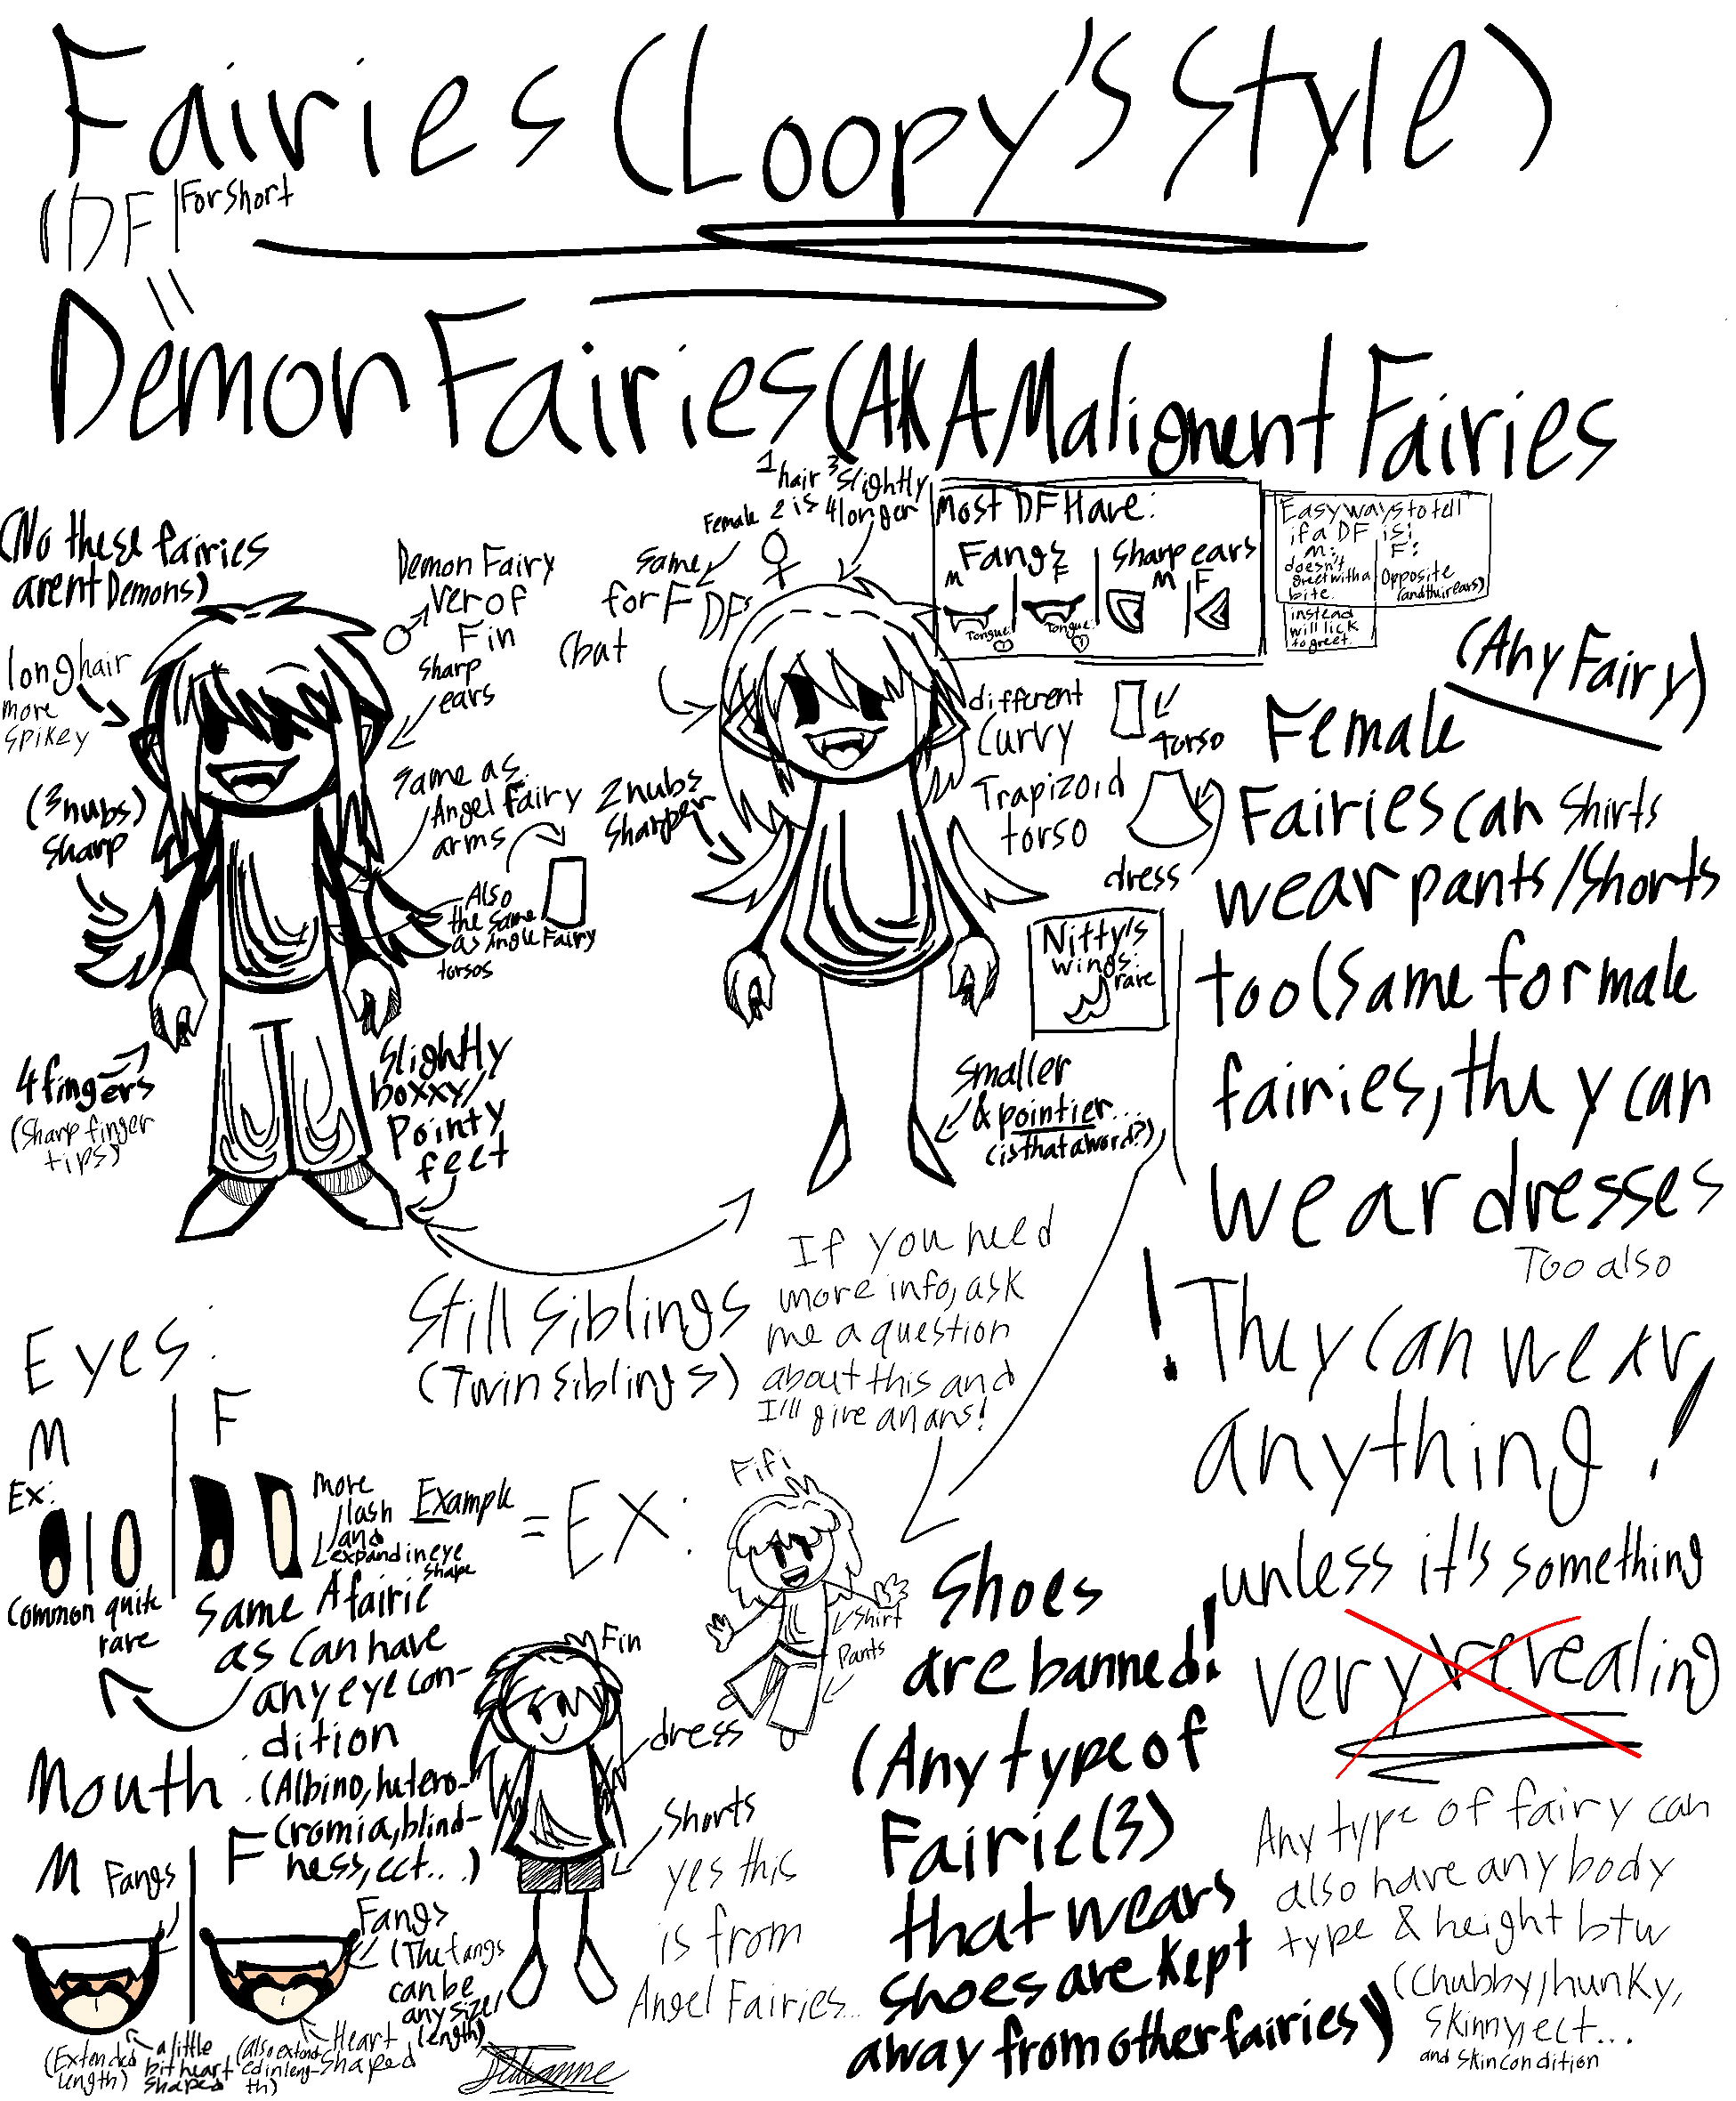 Fairies (Loopy's Style)
(DF | For Short
Demon Fairies (AKA Malignent Fairies
(No these fairies
arent Demons)
long hair
more
spikey
(3 nubs)
sharp
4 fingers
(sharp finger
tips)
Demon Fairy
ver of
Fin
sharp
ears
same as
Angel fairy
arms
Also
the same
as Angle Fairy
torsos
slightly
boxxy/
pointy
feet
1 hair 3 slightly
Female 2 is 4 longer
same
for F DFs
(bat
2 nubs
sharper
Most DF Have:
Fangs | Sharp ears
M F M F
Tongue: Tongue:
Easy ways to tell
if a DF is:
M: F:
doesn't
greet with a
bite.
instead
will lick
to greet.
Opposite
(and thuir ears)
different
curvy
Trapizoid
torso
torso
dress
Nitty's
wings:
rare
smaller
& pointier...
(is that a word?)
(Any Fairy)
Female
Fairies can shirts
wear pants/shorts
too (same for male
fairies, thuy can
wear dresses
Too also
! Thuy can wear
anything!
unless it's something
very revealing
Still siblings
(Twin siblings)
If you need
more info, ask
me a question
about this and
I'll give an ans!
Eyes:
M | F
Ex:
Common quite
rare
more
lash
and
expand in eye
shape
Example
= EX:
Same
as
A fairie
can have
any eye con-
dition
(Albino, hutero-
cromia, blind-
ness, ect...)
Fifi
shirt
Pants
Fin
dress
shorts
yes this
is from
Angel Fairies...
Mouth:
M Fangs | F
Fangs
(The fangs
can be
any size/
length)
(Extended
length)
a little
bit heart
shaped
(also extend-
ed in leng-
th)
Heart
shaped
Shoes
are banned!
(Any type of
Fairie(3)
that wears
shoes are kept
away from other fairies)
Any type of fairy can
also have any body
type & height btw
(Chubby, hunky,
skinny, ect...
and skin condition